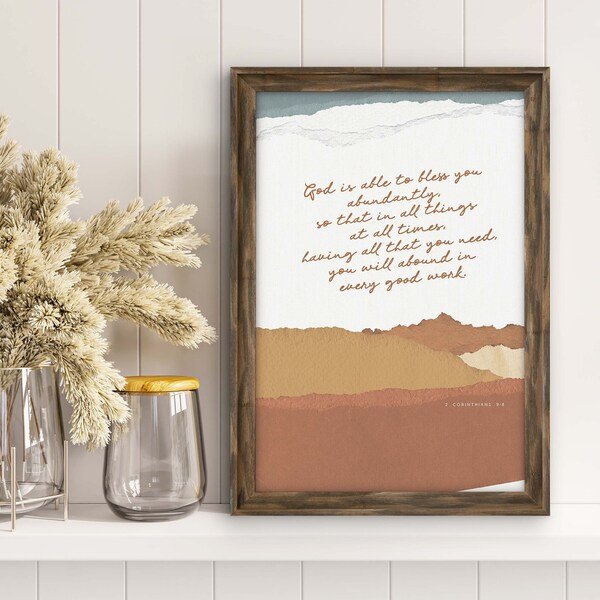 God is able to bless you
abundantly,
so that in all things
at all times,
having all that you need,
you will abound in
every good work.
2 CORINTHIANS 9:8